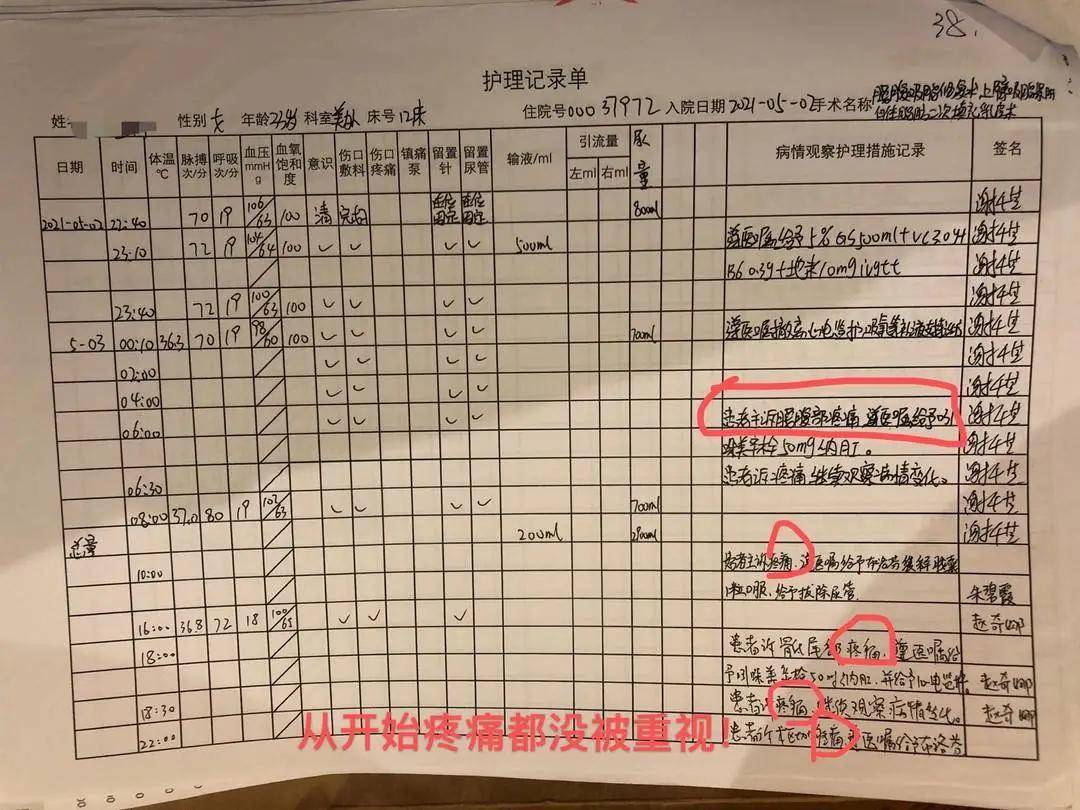 38.
护理记录单
姓名 性别 女 年龄 23岁 科室 美外 床号 12床 住院号 00037972 入院日期 2021-05-02 手术名称
日期 时间 体温℃ 脉搏次/分 呼吸次/分 血压mmHg 血氧饱和度 意识 伤口敷料 伤口疼痛 镇痛泵 留置针 留置尿管 输液/ml 引流量 左ml 右ml 尿量 病情观察护理措施记录 签名
2021-05-02 22:40 70 19 106/63 100 清 完好 在位固定 在位固定 800ml
23:10 72 19 104/64 100 ✓ ✓ ✓ ✓ 500ml 遵医嘱给予5%GS500ml+VC3.0+
B6 0.3g+地米10mg ivgtt
23:40 72 19 100/63 100 ✓ ✓ ✓ ✓
5-03 00:10 36.3 70 19 98/60 100 ✓ ✓ ✓ ✓ 700ml 遵医嘱撤离心电监护、吸氧
02:00 ✓ ✓ ✓ ✓
04:00 ✓ ✓ ✓ ✓
06:00 ✓ ✓ ✓ ✓ 患者主诉腰腹部疼痛,遵医嘱给予吲
哚美辛栓50mg纳肛。
06:30 患者诉疼痛,继续观察病情变化。
08:00 37.0 80 19 102/63 ✓ ✓ ✓ ✓ 700ml
总量 2000ml 2900ml
10:00 患者主诉疼痛,遵医嘱给予布洛芬缓释胶囊
1粒口服,给予拔除尿管 朱碧霞
16:00 36.8 72 18 100/65 ✓ ✓ ✓ 赵奇娜
18:00 患者诉骶尾部疼痛,遵医嘱给
予吲哚美辛栓50mg纳肛, 赵奇娜
18:30 患者诉疼痛,继续观察病情变化。 赵奇娜
22:00 疼痛 遵医嘱给布洛芬
从开始疼痛都没被重视!